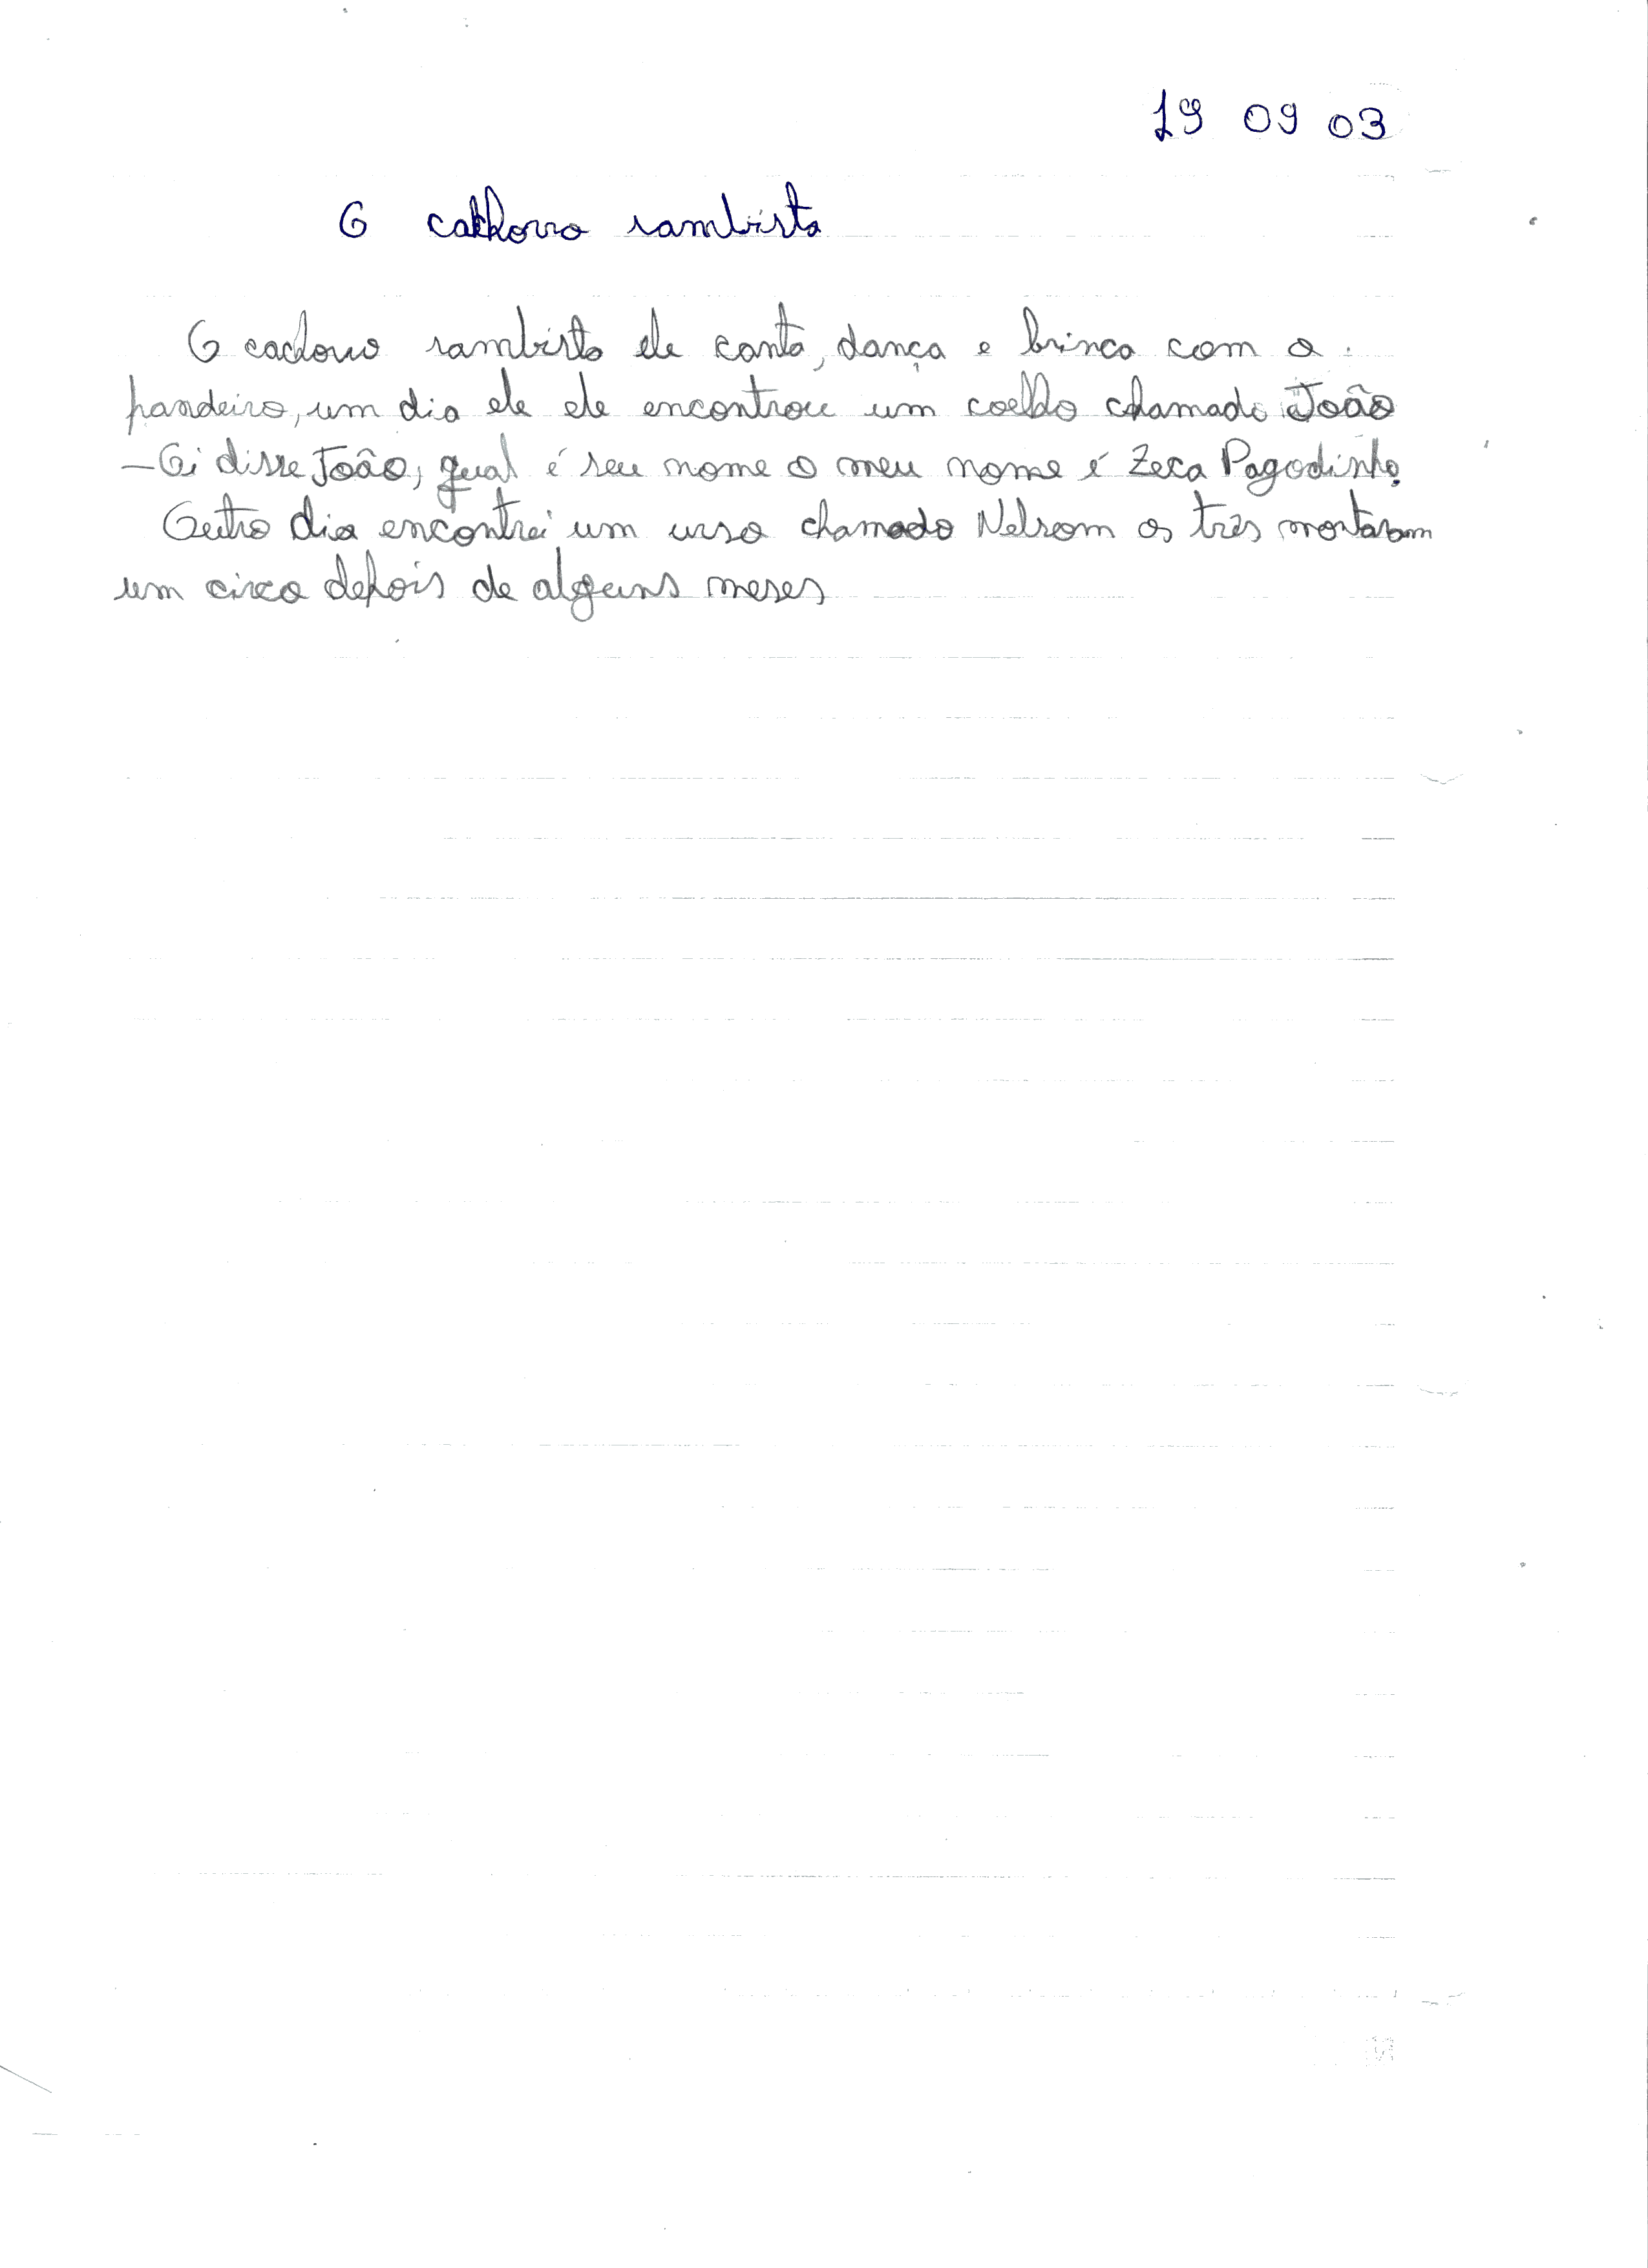 19 09 03
O cachorro sambista
O cachorro sambista ele canta, dança e brinca com o
pandeiro, um dia ele ele encontrou um coelho chamado João
— Oi disse João, qual é seu nome o meu nome é Zeca Pagodinho.
Outro dia encontrei um urso chamado Nelsom os três montaram
um circo depois de alguns meses